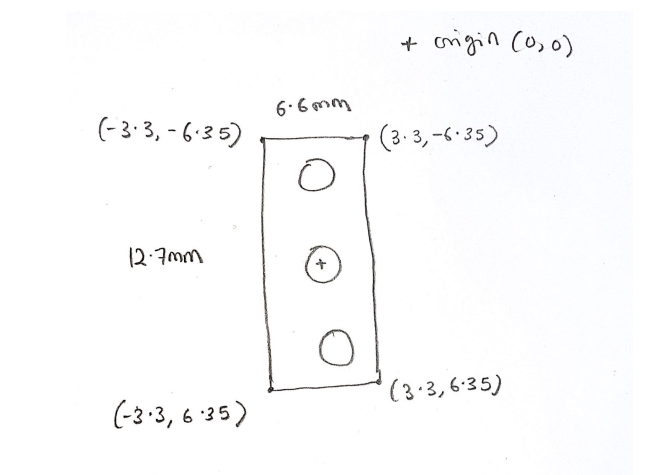 + origin (0,0)
6.6mm
(-3.3, -6.35)
(3.3, -6.35)
12.7mm
+
(3.3, 6.35)
(-3.3, 6.35)